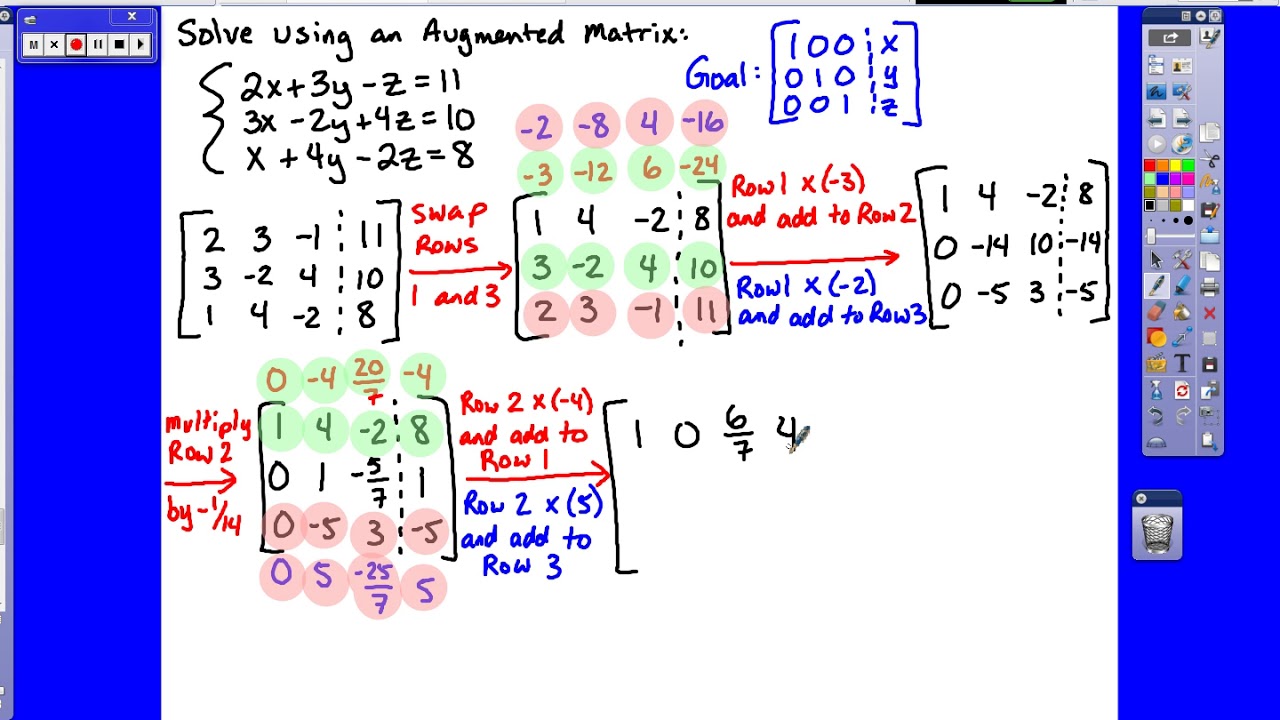 Solve using an Augmented Matrix:
2x+3y-z=11
3x-2y+4z=10
x+4y-2z=8
Goal:
1 0 0 x
0 1 0 y
0 0 1 z
2 3 -1 11
3 -2 4 10
1 4 -2 8
swap
Rows
1 and 3
-2 -8 4 -16
-3 -12 6 -24
1 4 -2 8
3 -2 4 10
2 3 -1 11
Row1 x (-3)
and add to Row2
Row1 x (-2)
and add to Row3
1 4 -2 8
0 -14 10 -14
0 -5 3 -5
multiply
Row 2
by -1/14
0 -4 20/7 -4
1 4 -2 8
0 1 -5/7 1
0 -5 3 -5
0 5 -25/7 5
Row 2 x (-4)
and add to
Row 1
Row 2 x (5)
and add to
Row 3
1 0 6/7 4
M
T